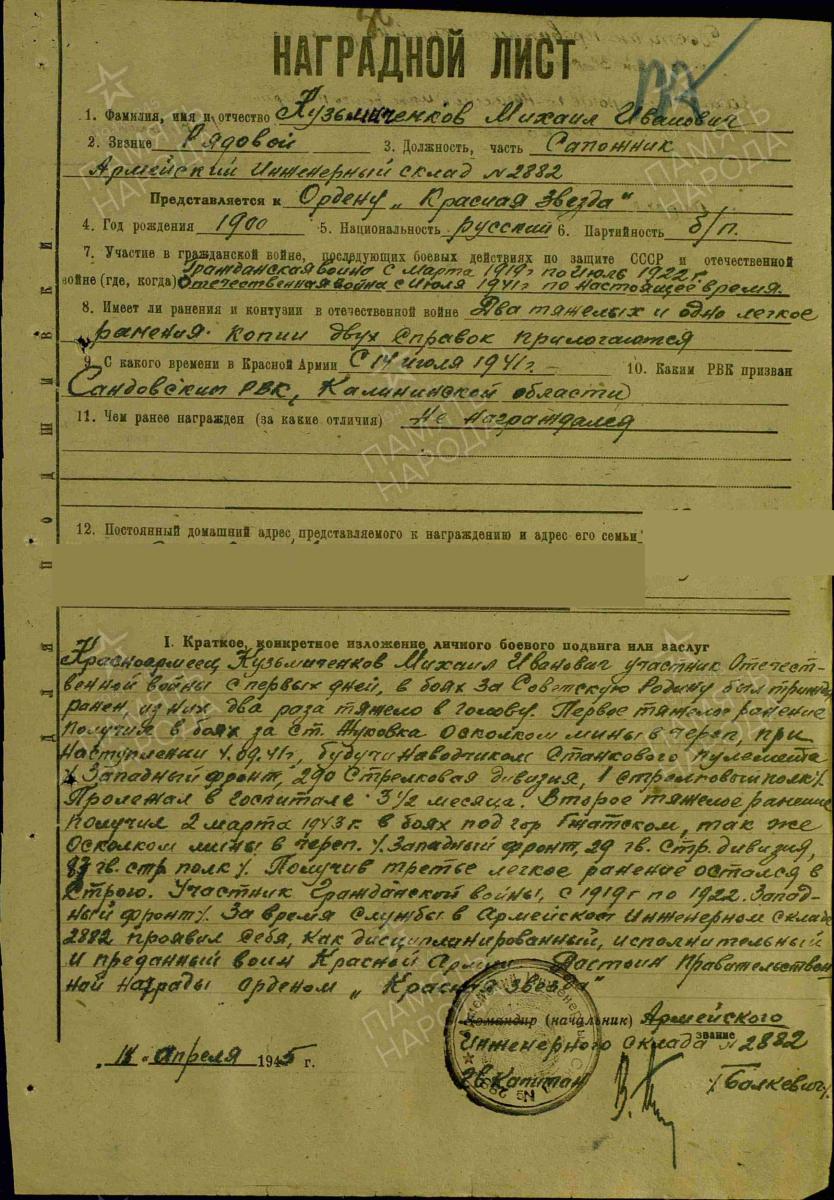 НАГРАДНОЙ ЛИСТ
1. Фамилия, имя и отчество Кузьмиченков Михаил Иванович
2. Звание Рядовой 3. Должность, часть Сапожник
Армейский Инженерный склад №2882
Представляется к Ордену „Красная Звезда"
4. Год рождения 1900 5. Национальность русский 6. Партийность б/п.
7. Участие в гражданской войне, последующих боевых действиях по защите СССР и отечественной
Гражданская война с марта 1919г по Июль 1922 г.
войне (где, когда) Отечественная война с Июля 1941г по настоящее время.
8. Имеет ли ранения и контузии в отечественной войне Два тяжелых и одно легкое
ранения. Копии двух справок прилогаются
9. С какого времени в Красной Армии С 14 июля 1941г. 10. Каким РВК призван
Сандовским РВК, Калининской области
11. Чем ранее награжден (за какие отличия) Не награждался
12. Постоянный домашний адрес представляемого к награждению и адрес его семьи
ДЛЯ ПОДШИВКИ
I. Краткое, конкретное изложение личного боевого подвига или заслуг
Красноармеец Кузьмиченков Михаил Иванович участник Отечест-
венной войны с первых дней, в боях за Советскую Родину был трижды
ранен, из них два раза тяжело в голову. Первое тяжелое ранение
получил в боях за ст. Жуковка осколком мины в череп, при
наступлении 4.09.41г, будучи наводчиком станкового пулемета
/Западный фронт, 290 стрелковая дивизия, 1 стрелковый полк/.
Пролежал в госпитале 3 1/2 месяца. Второе тяжелое ранение
получил 2 марта 1943 г. в боях под гор Гжатском, так же
осколком мины в череп. /Западный фронт, 29 гв. стр. дивизия,
87 гв. стр полк/. Получив третье легкое ранение остался в
строю. Участник Гражданской войны, с 1919г по 1922. Запад-
ный фронт/. За время службы в Армейском Инженерном складе
2882 проявил себя, как дисциплинированный, исполнительный
и преданный воин Красной Армии. Достоин правительствен
ной награды орденом „Красная звезда"
Командир (начальник) Армейского
звание
Инженерного склада №2882
Гв Капитан /Балкевич/.
„14" апреля 1945 г.
ПАМЯТЬ НАРОДА